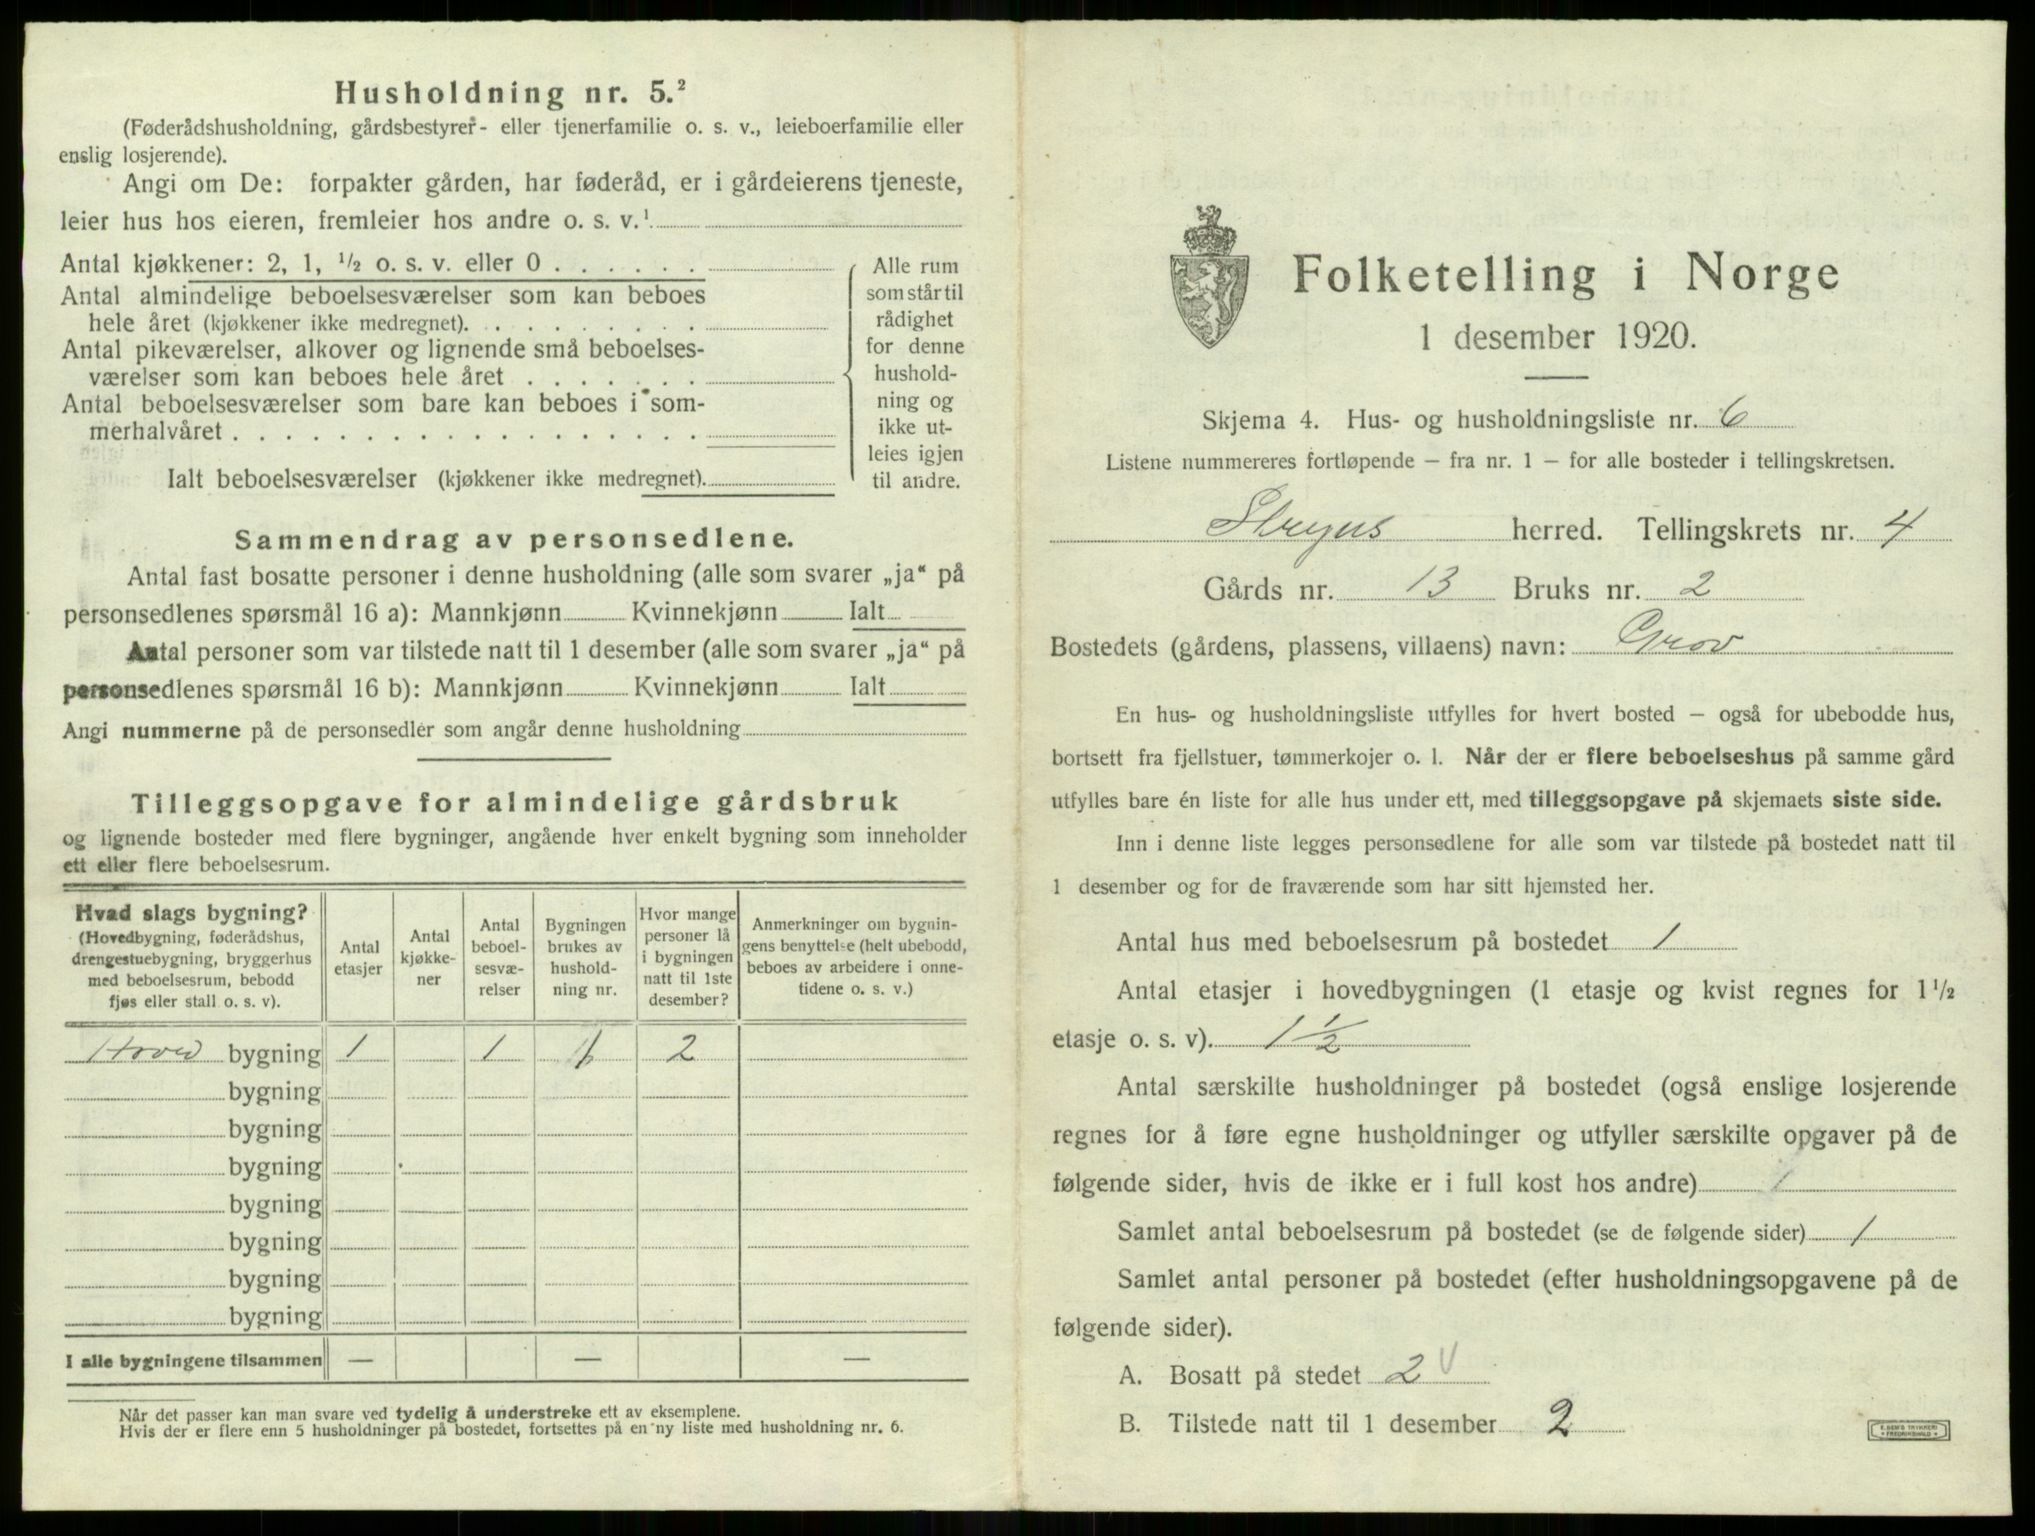 Husholdning nr. 5.²
(Føderådshusholdning, gårdsbestyrer- eller tjenerfamilie o. s. v., leieboerfamilie eller
enslig losjerende).
Angi om De: forpakter gården, har føderåd, er i gårdeierens tjeneste,
leier hus hos eieren, fremleier hos andre o. s. v.¹
Antal kjøkkener: 2, 1, ½ o. s. v. eller 0
Antal almindelige beboelsesværelser som kan beboes
hele året (kjøkkener ikke medregnet).
Antal pikeværelser, alkover og lignende små beboelses-
værelser som kan beboes hele året
Antal beboelsesværelser som bare kan beboes i som-
merhalvåret
Ialt beboelsesværelser (kjøkkener ikke medregnet).
Alle rum
som står til
rådighet
for denne
hushold-
ning og
ikke ut-
leies igjen
til andre.
Sammendrag av personsedlene.
Antal fast bosatte personer i denne husholdning (alle som svarer „ja“ på
personsedlenes spørsmål 16 a): Mannkjønn Kvinnekjønn Ialt
Antal personer som var tilstede natt til 1 desember (alle som svarer „ja“ på
personsedlenes spørsmål 16 b): Mannkjønn Kvinnekjønn Ialt
Angi nummerne på de personsedler som angår denne husholdning
Tilleggsopgave for almindelige gårdsbruk
og lignende bosteder med flere bygninger, angående hver enkelt bygning som inneholder
ett eller flere beboelsesrum.
Hvad slags bygning?
(Hovedbygning, føderådshus,
drengestuebygning, bryggerhus
med beboelsesrum, bebodd
fjøs eller stall o. s. v).
Antal
etasjer
Antal
kjøkke-
ner
Antal
beboel-
sesvæ-
relser
Bygningen
brukes av
hushold-
ning nr.
Hvor mange
personer lå
i bygningen
natt til 1ste
desember?
Anmerkninger om bygnin-
gens benyttelse (helt ubebodd,
beboes av arbeidere i onne-
tidene o. s. v.)
Hoved bygning 1 1 1 2
bygning
bygning
bygning
bygning
bygning
bygning
bygning
I alle bygningene tilsammen — — —
Når det passer kan man svare ved tydelig å understreke ett av eksemplene.
Hvis der er flere enn 5 husholdninger på bostedet, fortsettes på en ny liste med husholdning nr. 6.
Folketelling i Norge
1 desember 1920.
Skjema 4. Hus- og husholdningsliste nr. 6
Listene nummereres fortløpende – fra nr. 1 – for alle bosteder i tellingskretsen.
Stryns herred. Tellingskrets nr. 4
Gårds nr. 13 Bruks nr. 2
Bostedets (gårdens, plassens, villaens) navn: Grov
En hus- og husholdningsliste utfylles for hvert bosted – også for ubebodde hus,
bortsett fra fjellstuer, tømmerkojer o. l. Når der er flere beboelseshus på samme gård
utfylles bare én liste for alle hus under ett, med tilleggsopgave på skjemaets siste side.
Inn i denne liste legges personsedlene for alle som var tilstede på bostedet natt til
1 desember og for de fraværende som har sitt hjemsted her.
Antal hus med beboelsesrum på bostedet 1
Antal etasjer i hovedbygningen (1 etasje og kvist regnes for 1½
etasje o. s. v). 1½
Antal særskilte husholdninger på bostedet (også enslige losjerende
regnes for å føre egne husholdninger og utfyller særskilte opgaver på de
følgende sider, hvis de ikke er i full kost hos andre) 1
Samlet antal beboelsesrum på bostedet (se de følgende sider) 1
Samlet antal personer på bostedet (efter husholdningsopgavene på de
følgende sider).
A. Bosatt på stedet 2 V
B. Tilstede natt til 1 desember 2
E. SEM'S TRYKKERI
FREDRIKSHALD